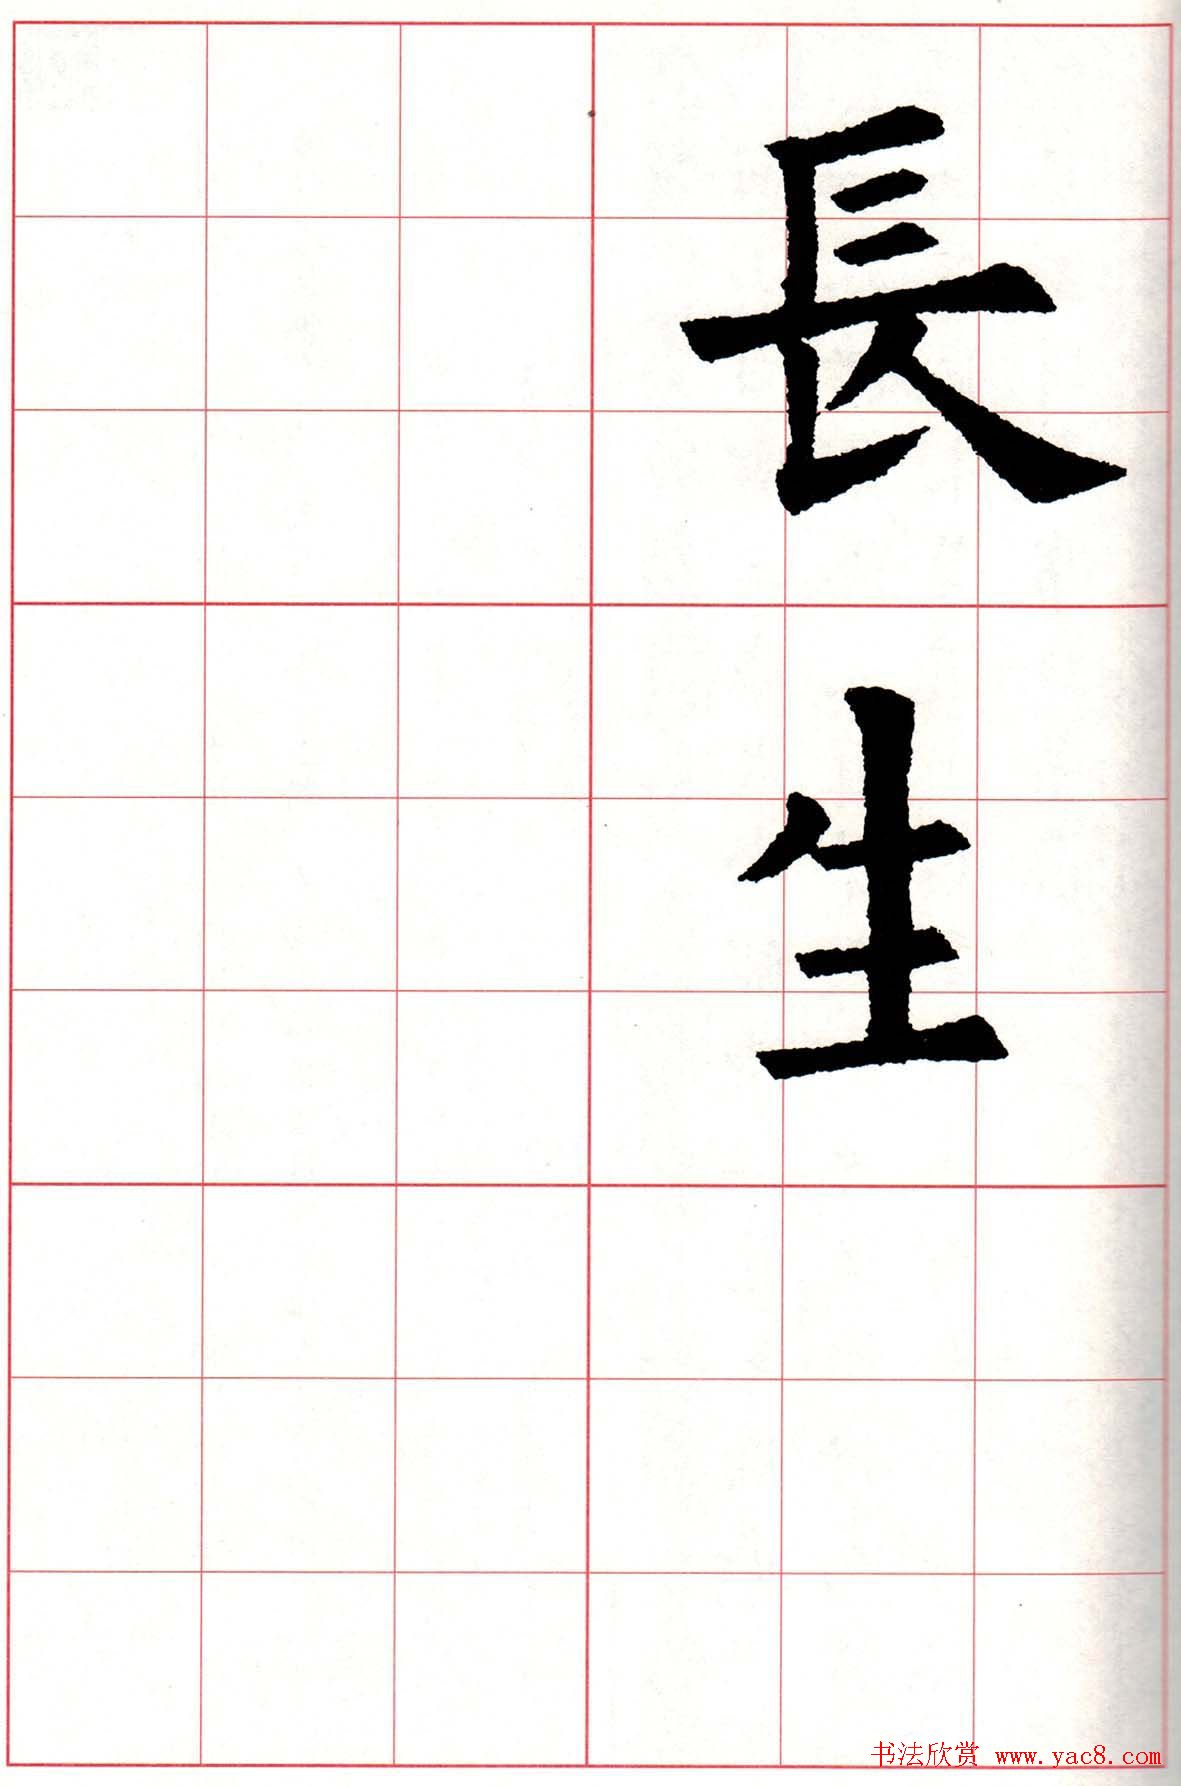 長生
书法欣赏 www.yac8.com